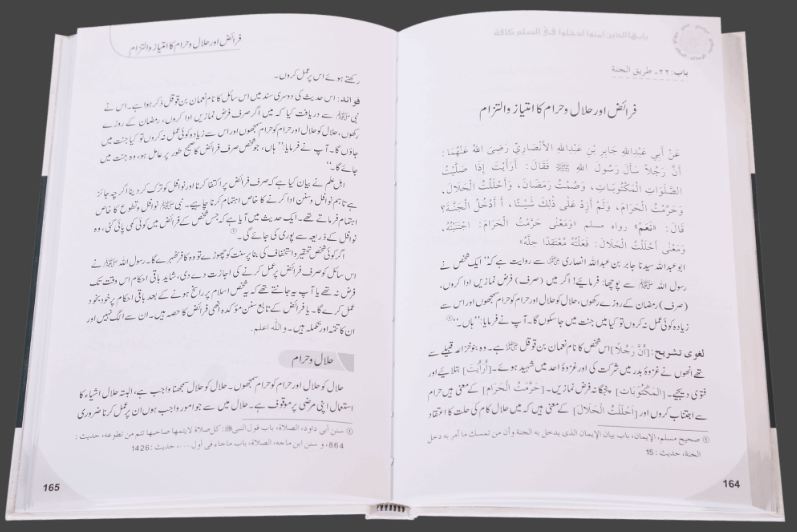 باب: ۲۲۔ طریق الجنة
فرائض اور حلال و حرام کا امتیاز والتزام
عَنْ أَبِي عَبْدِاللهِ جَابِرِ بْنِ عَبْدِاللهِ الْأَنْصَارِيِّ رَضِيَ اللهُ عَنْهُمَا:
أَنَّ رَجُلًا سَأَلَ رَسُولَ اللهِ ﷺ فَقَالَ: أَرَأَيْتَ إِذَا صَلَّيْتُ
الصَّلَوَاتِ الْمَكْتُوبَاتِ، وَصُمْتُ رَمَضَانَ، وَأَحْلَلْتُ الْحَلَالَ،
وَحَرَّمْتُ الْحَرَامَ، وَلَمْ أَزِدْ عَلَى ذٰلِكَ شَيْئًا، أَ أَدْخُلُ الْجَنَّةَ؟
قَالَ: «نَعَمْ» رواه مسلم «وَمَعْنَى حَرَّمْتُ الْحَرَامَ: اجْتَنَبْتُهُ،
وَمَعْنَى أَحْلَلْتُ الْحَلَالَ: فَعَلْتُهُ مُعْتَقِدًا حِلَّهُ»
ابو عبداللہ سیدنا جابر بن عبداللہ انصاری سے روایت ہے کہ ایک شخص نے
رسول اللہ ﷺ سے پوچھا: فرمایئے! اگر میں (صرف) فرض نمازیں ادا کروں،
(صرف) رمضان کے روزے رکھوں، حلال کو حلال اور حرام کو حرام سمجھوں اور اس سے
زیادہ کوئی عمل نہ کروں تو کیا میں جنت میں جا سکوں گا۔ آپ نے فرمایا: ''ہاں۔''①
لغوی تشریح: [أَنَّ رَجُلًا] اس شخص کا نام نعمان بن قوقل ہے۔ وہ بنو خزاعہ قبیلے سے
تھے انھوں نے غزوۂ بدر میں شرکت کی اور غزوۂ احد میں شہید ہوئے۔ [أَرَأَيْتَ] بتلایئے اور
فتویٰ دیجیے۔ [الْمَكْتُوبَاتِ] پنجگانہ فرض نمازیں۔ [حَرَّمْتُ الْحَرَامَ] کے معنی ہیں حرام
سے اجتناب کروں اور [أَحْلَلْتُ الْحَلَالَ] کے معنی ہیں کہ میں حلال کام کی حلت کا اعتقاد
① صحيح مسلم، الإيمان، باب بيان الإيمان الذي يدخل به الجنة وأن من تمسك ما أمر به دخل
الجنة، حديث: 15
164
فرائض اور حلال و حرام کا امتیاز والتزام
رکھتے ہوئے اس پر عمل کروں۔
فوائد: اس حدیث کی دوسری سند میں اس سائل کا نام نعمان بن قوقل ذکر ہوا ہے۔ اس نے
نبی ﷺ سے دریافت کیا کہ میں اگر صرف فرض نمازیں ادا کروں، رمضان کے روزے
رکھوں، حلال کو حلال اور حرام کو حرام سمجھوں اور اس سے زیادہ کوئی عمل نہ کروں تو کیا جنت میں
جاؤں گا۔ آپ نے فرمایا: ''ہاں، جو شخص صرف فرائض کا صحیح طور پر عامل ہو، وہ جنت میں
جائے گا۔''
اہل علم نے بیان کیا ہے کہ صرف فرائض پر اکتفا کرنا اور نوافل کو ترک کر دینا اگرچہ جائز
ہے تاہم نوافل و سنن ادا کرنے کا خاص اہتمام کرنا چاہیے۔ نبی ﷺ نوافل و تطوع کا خاص
اہتمام فرماتے تھے۔ ایک حدیث میں آیا ہے کہ جس شخص کے فرائض میں کوئی کمی پائی گئی، وہ
نوافل کے ذریعہ سے پوری کی جائے گی۔①
اگر کوئی شخص تحقیر و استخفاف کی بنا پر سنت کو چھوڑے تو وہ کافر ٹھہرے گا۔ رسول اللہ ﷺ نے
اس سائل کو صرف فرائض پر عمل کرنے کی اجازت دے دی، شاید باقی احکام اس وقت تک
فرض نہ تھے یا آپ یہ جانتے تھے کہ یہ شخص اسلام پر راسخ ہونے کے بعد باقی احکام پر خود بخود
عمل کرے گا۔ یا فرائض کے تابع سنن مؤکدہ بھی فرائض کا حصہ ہیں۔ ان سے الگ نہیں اور
ان کا تتمہ اور تکملہ ہیں۔ واللہ اعلم۔
حلال و حرام
حلال کو حلال اور حرام کو حرام سمجھوں۔ حلال کو حلال سمجھنا واجب ہے، البتہ حلال اشیاء کا
استعمال اپنی مرضی پر موقوف ہے۔ حلال میں سے جو امور واجب ہوں ان پر عمل کرنا ضروری
① سنن أبي داود، الصلاة، باب قول النبي ﷺ: كل صلاة لا يتمها صاحبها تتم من تطوعه، حديث:
864، و سنن ابن ماجه، الصلاة، باب ماجاء في أول ....، حديث: 1426
165